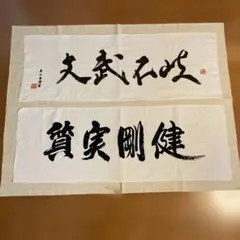 文武不岐
質実剛健